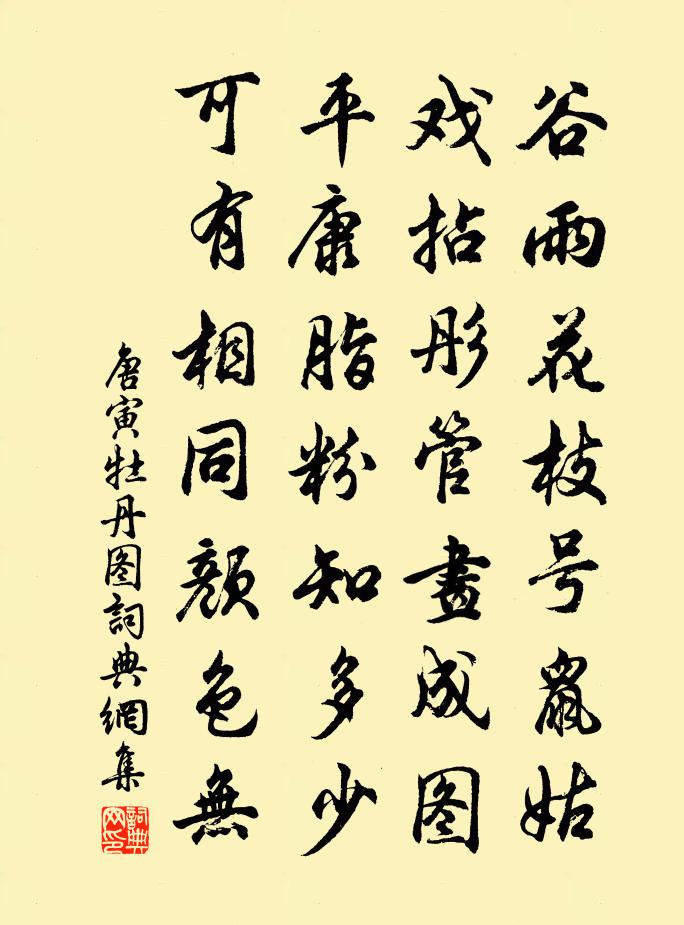 谷雨花枝号鼠姑
戏拈彤管畫成图
平康脂粉知多少
可有相同颜色無
唐寅牡丹图詞典網集
詞典网印